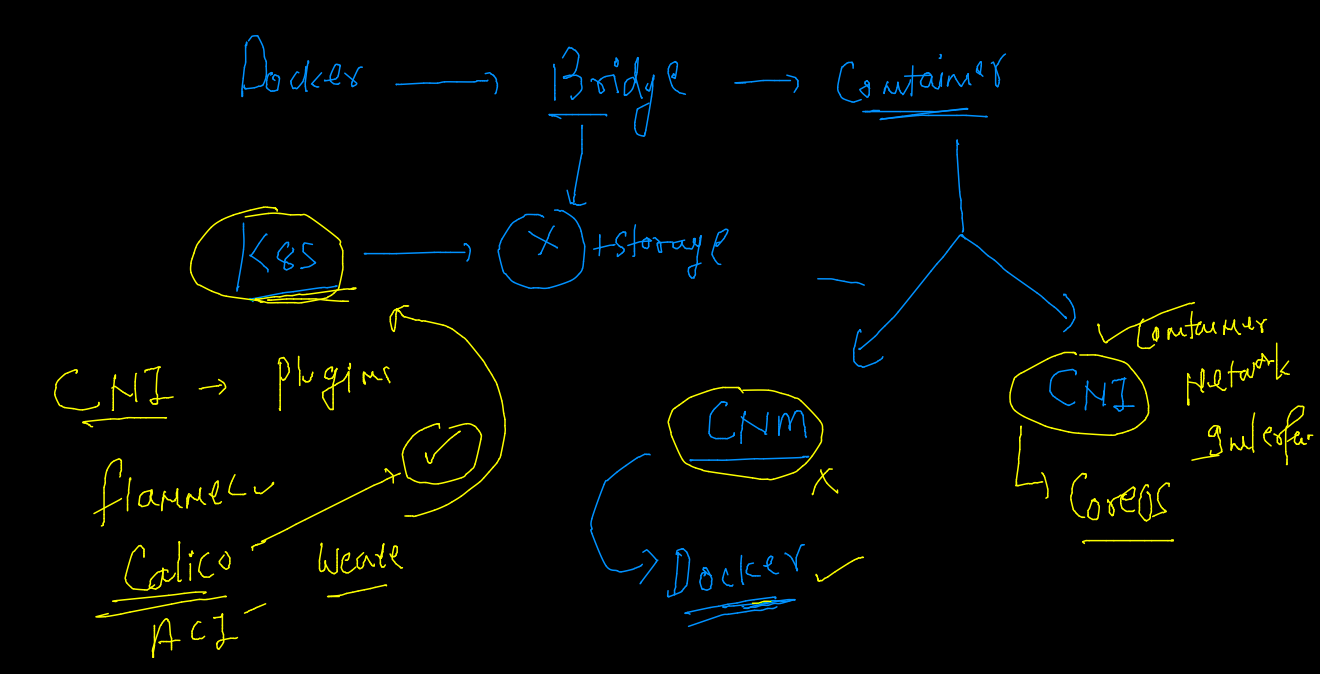 Docker → Bridge → Container
K8S → X + storage
CNI → Plugins
flannel ✓
Calico ✓
Weave
ACI
CNM X
Docker ✓
CNI
✓ Container
Network
Interfa
CoreOS